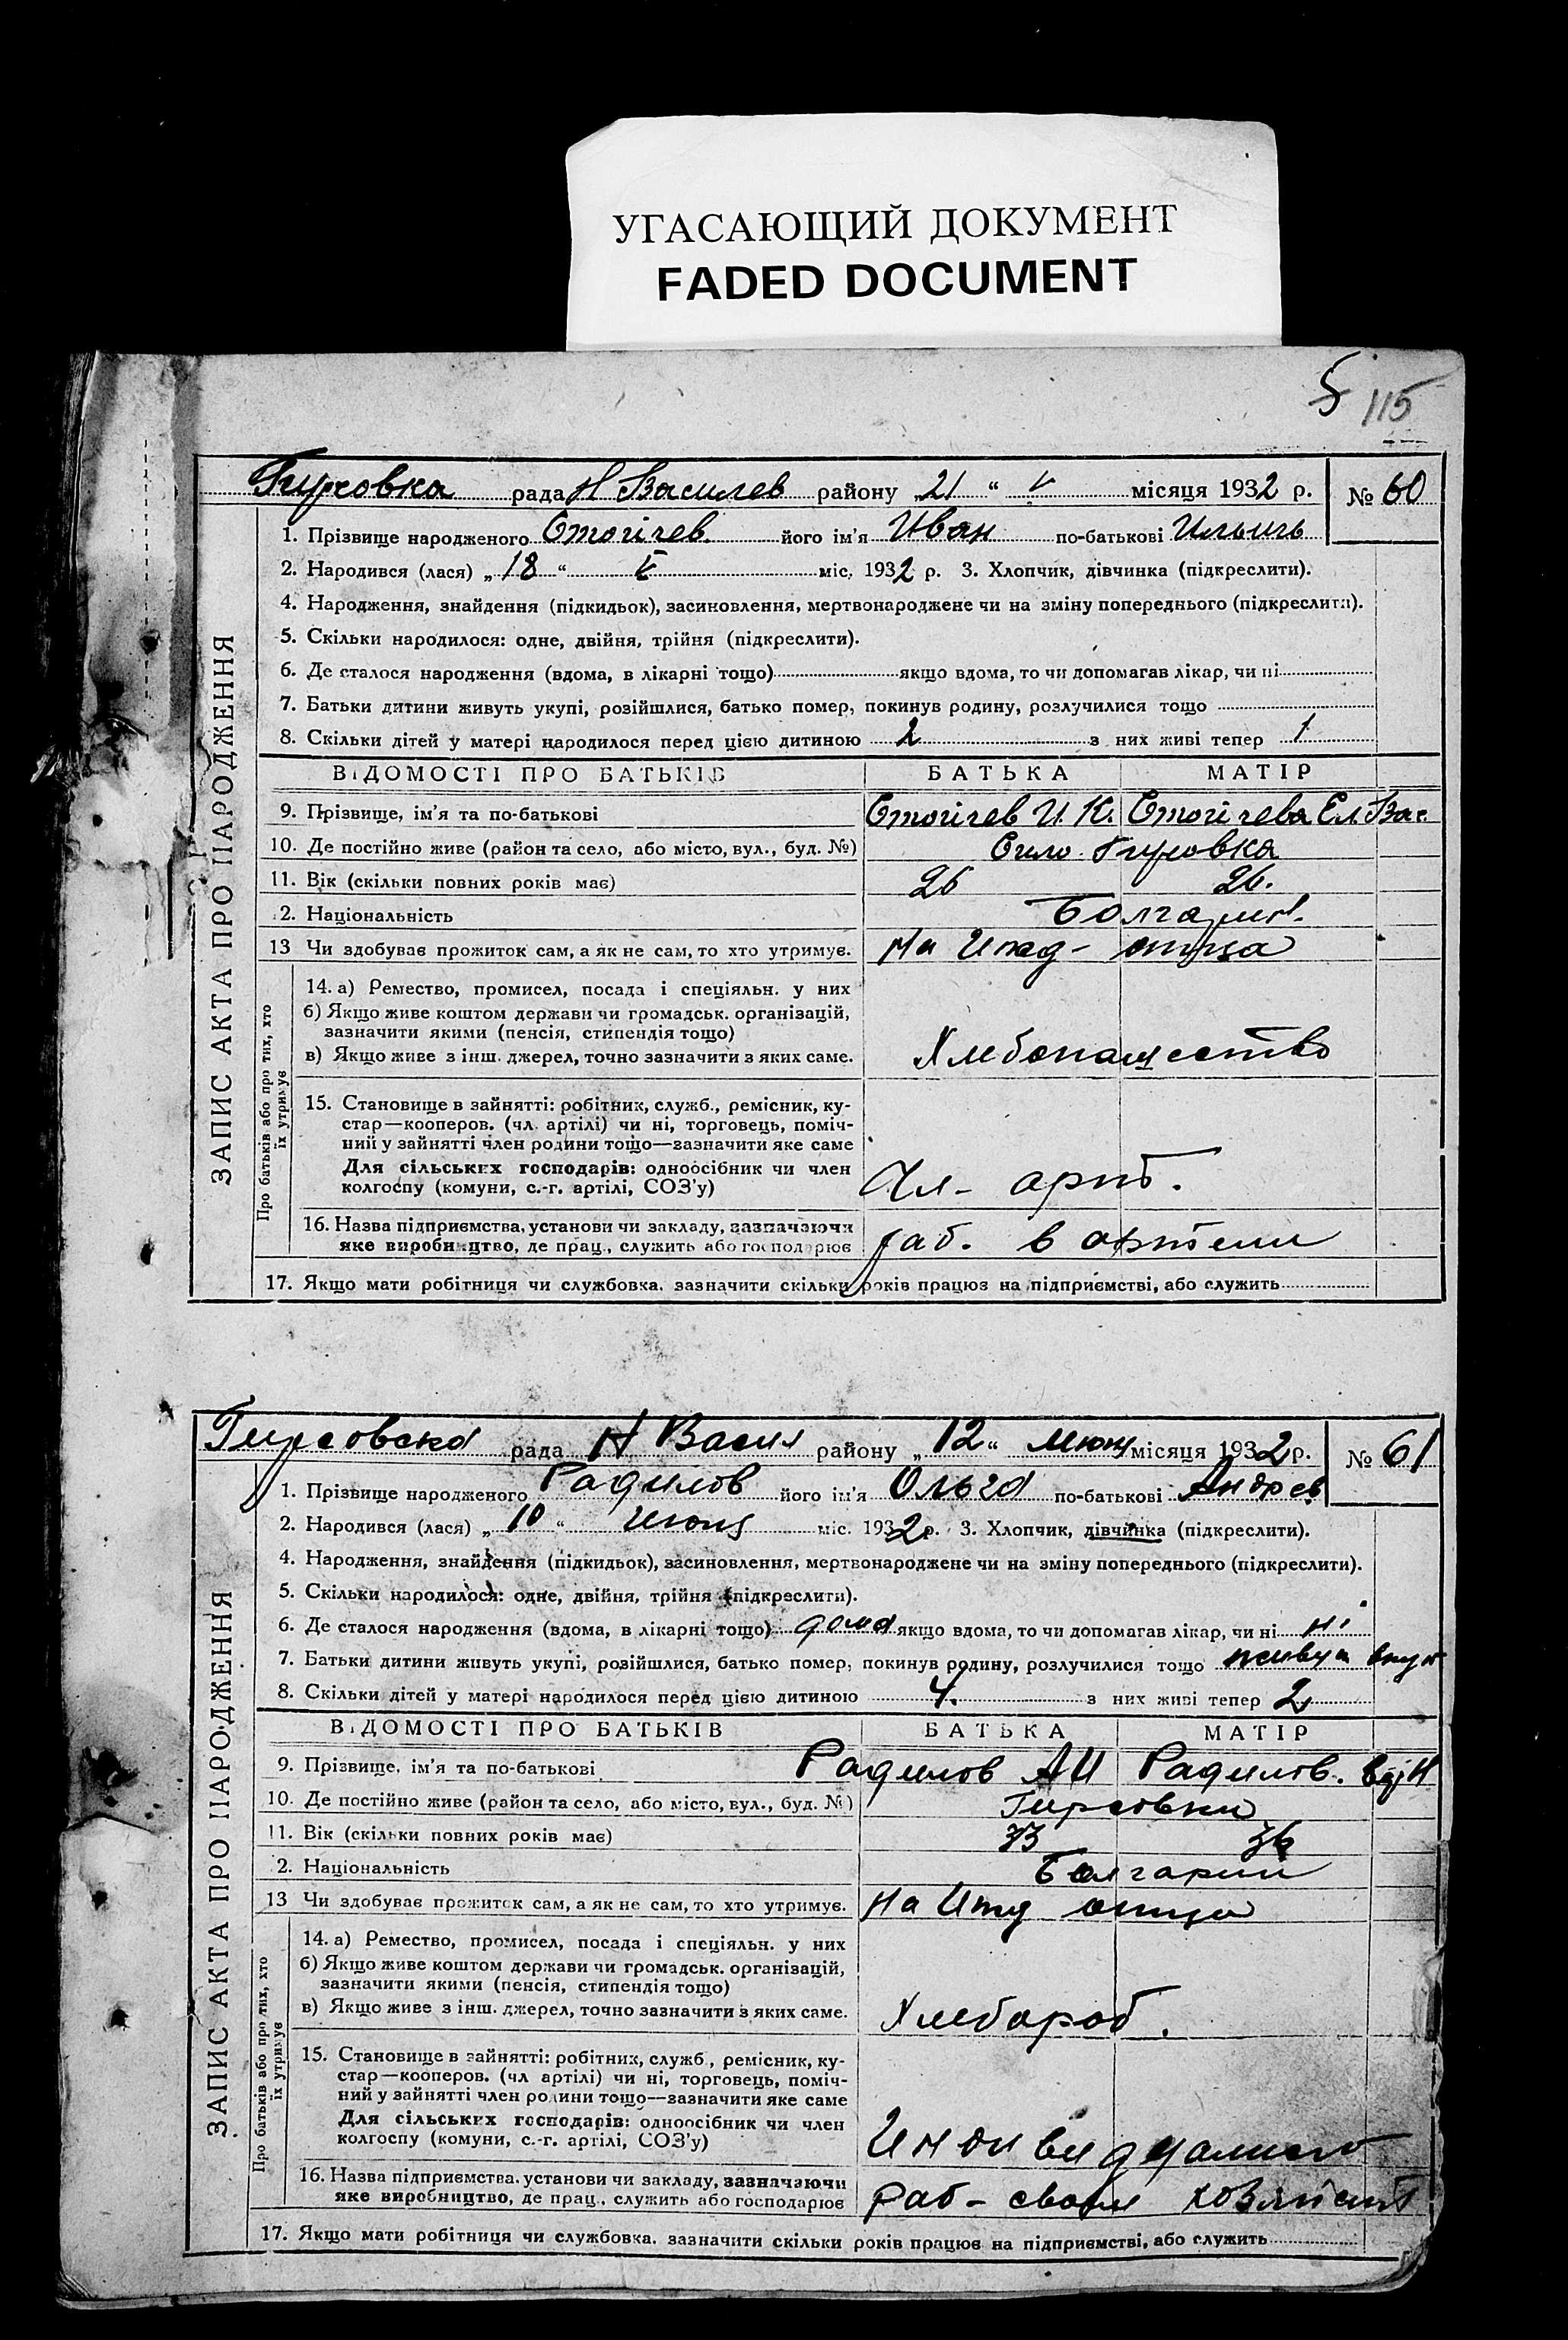 УГАСАЮЩИЙ ДОКУМЕНТ
FADED DOCUMENT
5 115
Гирсовка рада Н Василев району „21“ V місяця 1932 р. № 60
ЗАПИС АКТА ПРО НАРОДЖЕННЯ
1. Прізвище народженого Стогічев його ім'я Иван по-батькові Ильичь
2. Народився (лася) „18“ V міс. 1932 р. 3. Хлопчик, дівчинка (підкреслити).
4. Народження, знайдення (підкидьок), засиновлення, мертвонароджене чи на зміну попереднього (підкреслити).
5. Скільки народилося: одне, двійня, трійня (підкреслити).
6. Де сталося народження (вдома, в лікарні тощо) якщо вдома, то чи допомагав лікар, чи ні
7. Батьки дитини живуть укупі, розійшлися, батько помер, покинув родину, розлучилися тощо
8. Скільки дітей у матері народилося перед цією дитиною 2 з них живі тепер 1
ВІДОМОСТІ ПРО БАТЬКІВ БАТЬКА МАТІР
9. Прізвище, ім'я та по-батькові Стогічев И. К. Стогічева Ел. Вас.
10. Де постійно живе (район та село, або місто, вул., буд. №) Село Гирсовка
11. Вік (скільки повних років має) 26 26.
2. Національність Болгарин.
13 Чи здобуває прожиток сам, а як не сам, то хто утримує. На Ижд- отца
Про батьків або про тих, хто їх утримує
14. а) Ремество, промисел, посада і спеціяльн. у них
б) Якщо живе коштом держави чи громадськ. організацій,
зазначити якими (пенсія, стипендія тощо)
в) Якщо живе з інш. джерел, точно зазначити з яких саме. Хлебопашество
15. Становище в зайнятті: робітник, служб., ремісник, ку-
стар—кооперов. (чл. артілі) чи ні, торговець, поміч-
ний у зайнятті член родини тощо—зазначити яке саме
Для сільських господарів: одноосібник чи член
колгоспу (комуни, с.-г. артілі, СОЗ'у) Чл- арт.
16. Назва підприємства, установи чи закладу, зазначаючи
яке виробництво, де прац., служить або господарює раб. в артели
17. Якщо мати робітниця чи службовка. зазначити скільки років працює на підприємстві, або служить
Гирсовска рада Н Васил району „12“ Июня місяця 1932 р. № 61
ЗАПИС АКТА ПРО НАРОДЖЕННЯ
1. Прізвище народженого Радилов його ім'я Ольга по-батькові Андрев
2. Народився (лася) „10“ Июня міс. 1932 р. 3. Хлопчик, дівчинка (підкреслити).
4. Народження, знайдення (підкидьок), засиновлення, мертвонароджене чи на зміну попереднього (підкреслити).
5. Скільки народилося: одне, двійня, трійня (підкреслити).
6. Де сталося народження (вдома, в лікарні тощо) дома якщо вдома, то чи допомагав лікар, чи ні ні
7. Батьки дитини живуть укупі, розійшлися, батько помер, покинув родину, розлучилися тощо живут
8. Скільки дітей у матері народилося перед цією дитиною 4. з них живі тепер 2
ВІДОМОСТІ ПРО БАТЬКІВ БАТЬКА МАТІР
9. Прізвище, ім'я та по-батькові Радилов А И Радилов.
10. Де постійно живе (район та село, або місто, вул., буд. №) Гирсовки
11. Вік (скільки повних років має) 33 36
2. Національність Болгарин
13 Чи здобуває прожиток сам, а як не сам, то хто утримує. На Ижд отца
Про батьків або про тих, хто їх утримує
14. а) Ремество, промисел, посада і спеціяльн. у них
б) Якщо живе коштом держави чи громадськ. організацій,
зазначити якими (пенсія, стипендія тощо)
в) Якщо живе з інш. джерел, точно зазначити з яких саме. Хлебороб.
15. Становище в зайнятті: робітник, служб., ремісник, ку-
стар—кооперов. (чл артілі) чи ні, торговець, поміч-
ний у зайнятті член родини тощо—зазначити яке саме
Для сільських господарів: одноосібник чи член
колгоспу (комуни, с.-г. артілі, СОЗ'у)
16. Назва підприємства. установи чи закладу, зазначаючи
яке виробництво, де прац., служить або господарює раб-
17. Якщо мати робітниця чи службовка. зазначити скільки років працює на підприємстві, або служить